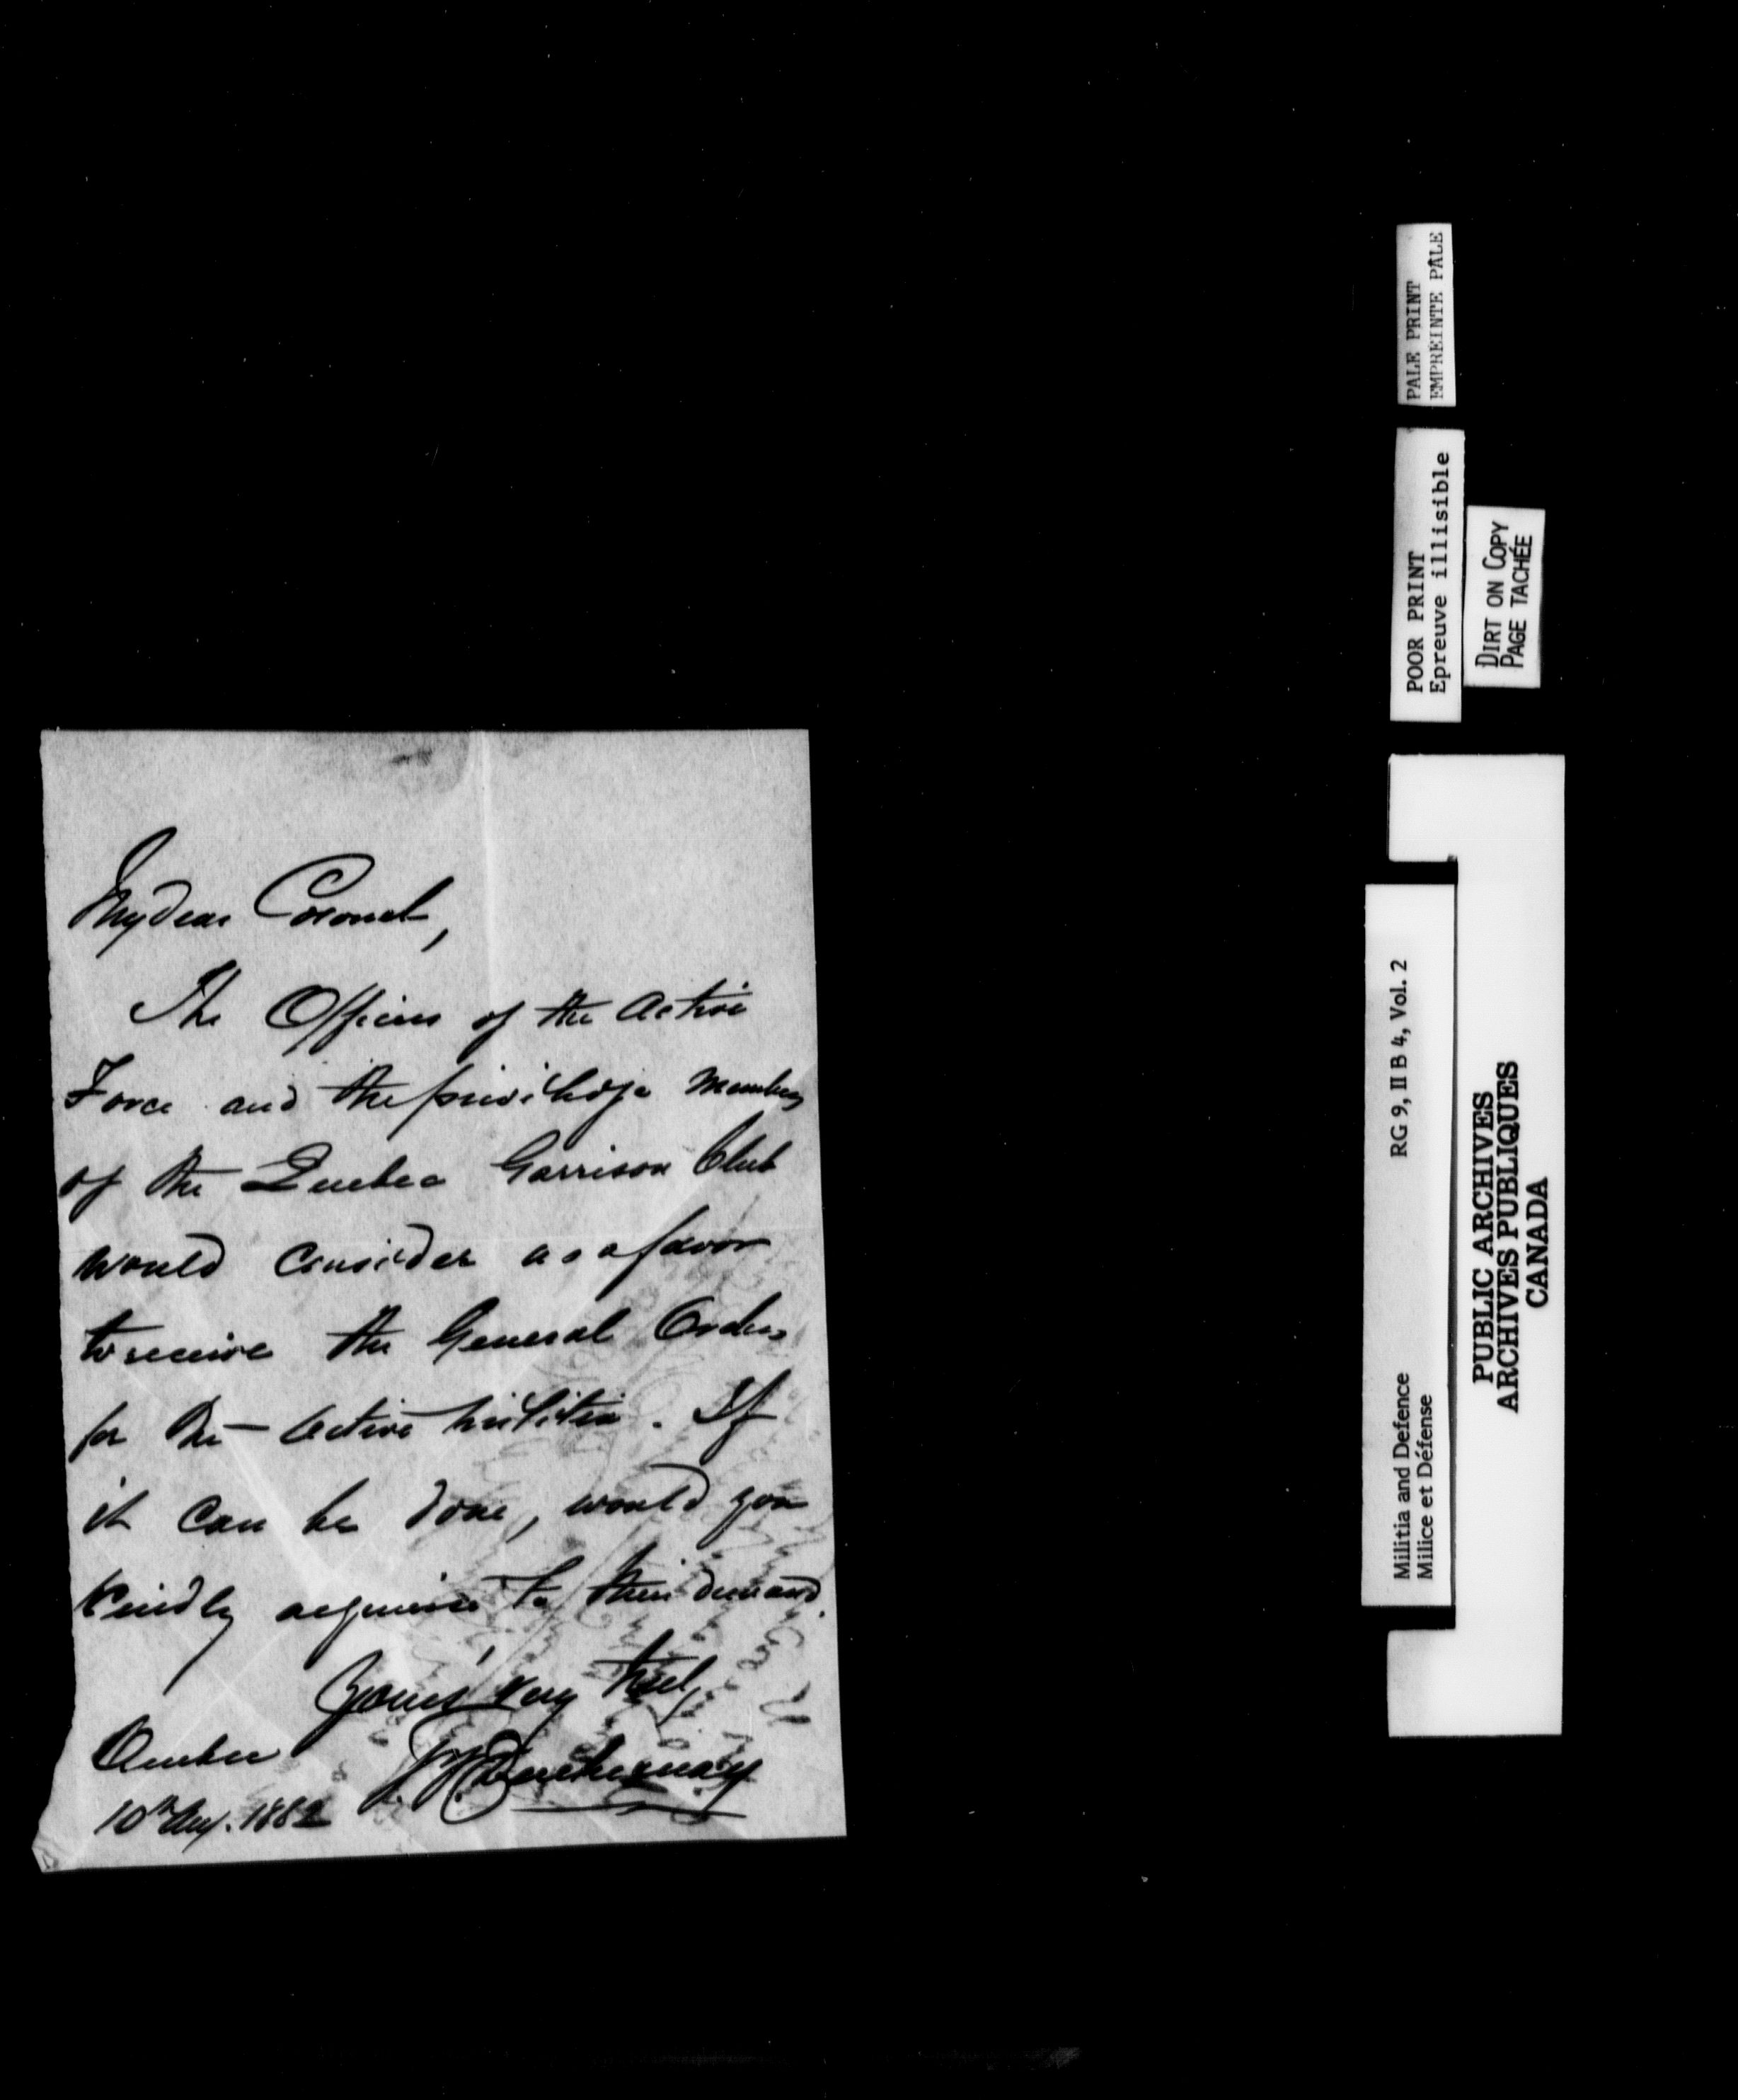 My dear Coronel,
The Officers of the Active
Force and the priviledge Members
of the Quebec Garrison Club
would consider as a favor
to receive the General Orders
for the Active Militia. If
it can be done, would you
Kindly acquiesce to their demand.
Yours very truly
Quebec
10th Aug. 1882
PALE PRINT
EMPREINTE PÂLE
POOR PRINT
Epreuve illisible
DIRT ON COPY
PAGE TACHÉE
Militia and Defence RG 9, II B 4, Vol. 2
Milice et Défense
PUBLIC ARCHIVES
ARCHIVES PUBLIQUES
CANADA